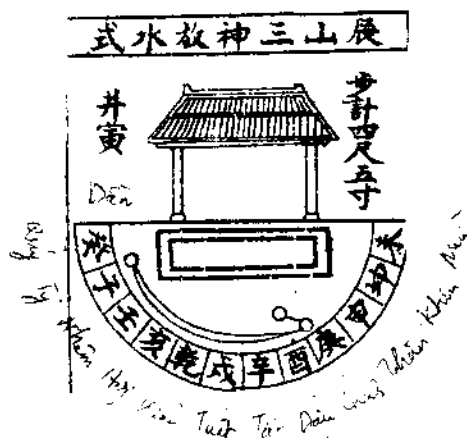 辰山三神放水式
步計四尺五寸
井寅
Dần
癸子壬亥乾戌辛酉庚申坤未
Quý Tý Nhâm Hợi Kiền Tuất Tân Dậu Canh Thân Khôn Mùi